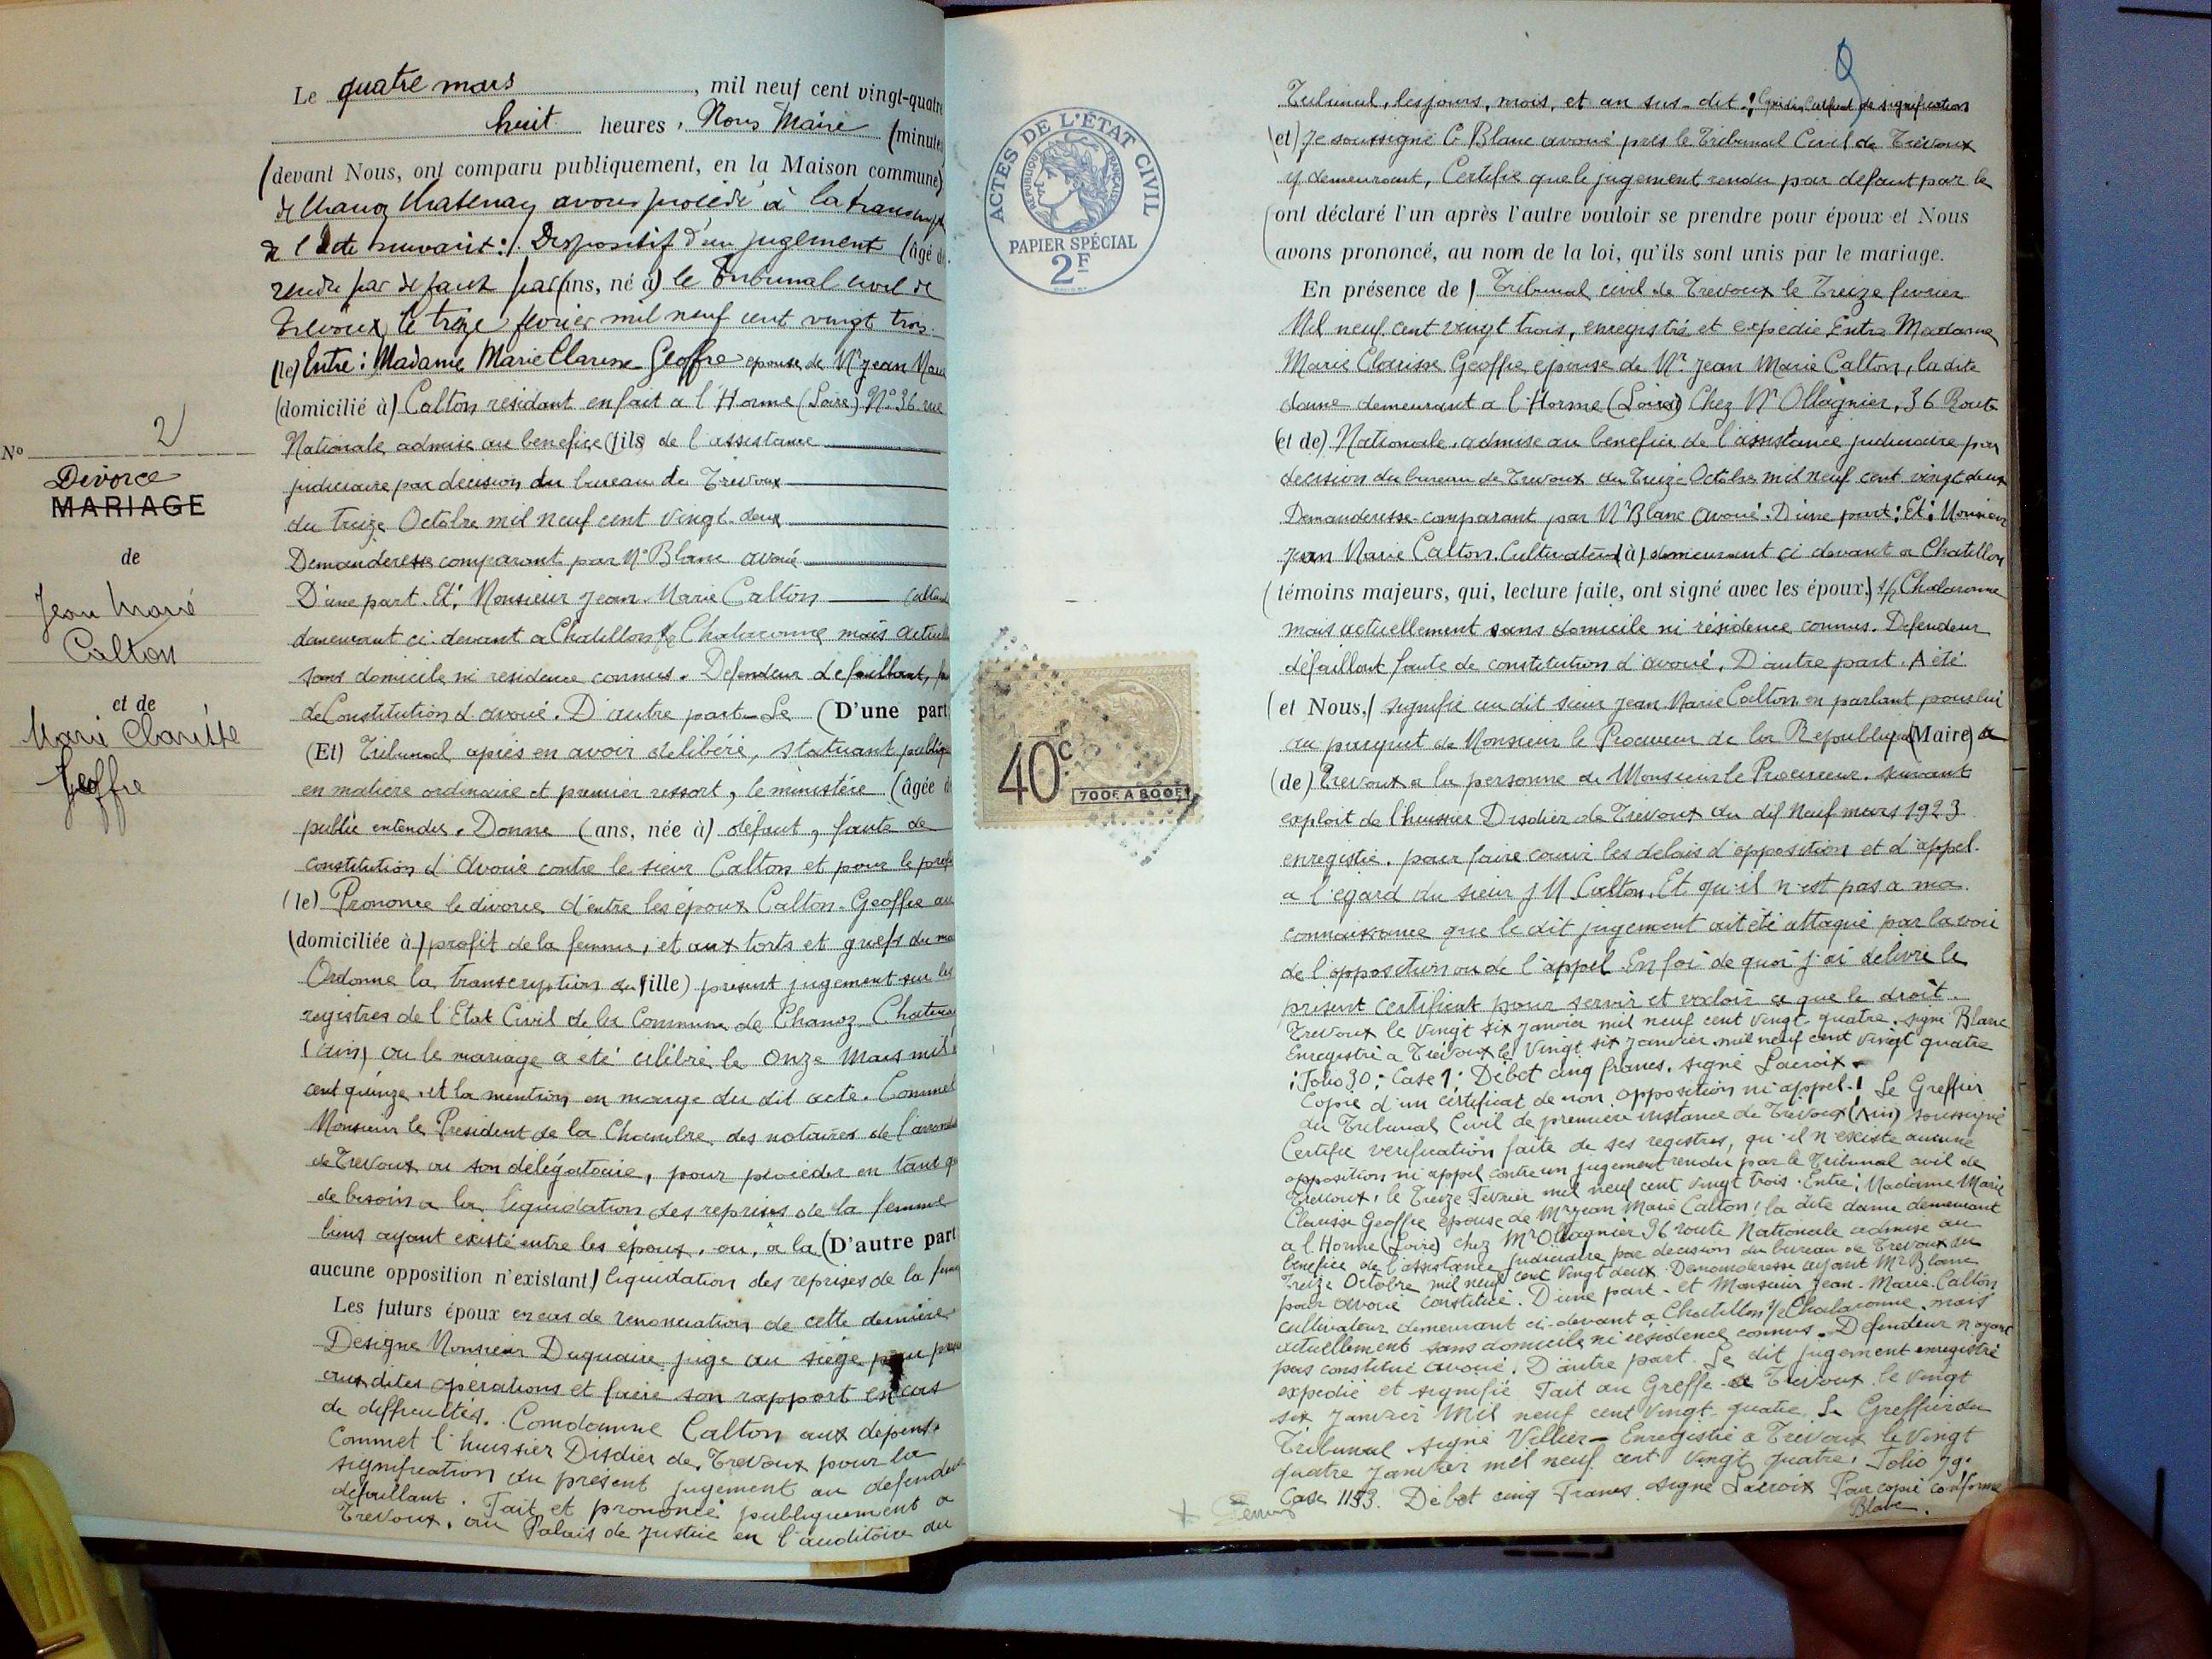 N° 2
Divorce
MARIAGE
de
Jean Marie
Calton
et de
Marie Clarisse
Geoffre
Le quatre mars, mil neuf cent vingt-quatre
huit heures, Nous Maire (minutes
(devant Nous, ont comparu publiquement, en la Maison commune)
de Chanoz Chatenay avons procédé à la
de l'acte suivant : Dispositif d'un jugement (âgé de
rendu par defaut par (ans, né à) le Tribunal civil de
Trevoux le treize fevrier mil neuf cent vingt trois
(le) Entre : Madame Marie Clarisse Geoffre epouse de Mr Jean Marie
(domicilié à) Calton residant en fait a l'Horme (Loire) No 36 rue
Nationale admise au benefice (fils de l'assistance
judiciaire par decision du bureau de Trevoux
du treize Octobre mil neuf cent vingt-deux
Demanderesse comparant par Me Blanc avoué
D'une part. Et : Monsieur Jean Marie Calton
demeurant ci-devant a Chatillon s/ Chalaronne mais
sans domicile ni residence connus. Defendeur defaillant,
de Constitution d'avoué. D'autre part - Le (D'une part
(Et) Tribunal après en avoir delibéré, statuant
en matière ordinaire et premier ressort, le ministère (âgée de
public entendu. Donne (ans, née à) defaut, faute de
constitution d'Avoué contre le sieur Calton et pour le
(le) Prononce le divorce d'entre les époux Calton-Geoffre au
(domiciliée à) profit de la femme, et aux torts et griefs du
Ordonne la transcription du fille) present jugement sur les
registres de l'Etat Civil de la Commune de Chanoz Chatenay
(Ain) ou le mariage a été célébré le Onze Mars mil
cent quinze, et la mention en marge du dit acte. Commet
Monsieur le President de la Chambre des notaires de
de Trevoux ou son délégataire, pour proceder en tant que
de besoin a la liquidation des reprises de la femme
biens ayant existé entre les époux, ou, a la (D'autre part
aucune opposition n'existant) liquidation des reprises de la
Les futurs époux en cas de renonciation de cette dernière
Designe Monsieur Duquaire juge au siège pour
aux dites opérations et faire son rapport en cas
de difficultés. Condamne Calton aux depens.
Commet l'huissier Disdier de Trevoux pour la
signification du présent jugement au
défaillant. Fait et prononcé publiquement a
Trevoux, au Palais de Justice en l'auditoire du
ACTES DE L'ÉTAT CIVIL
RÉPUBLIQUE FRANÇAISE
PAPIER SPÉCIAL
2F
40c
700F A 800F
Tribunal, les jours, mois, et an sus-dit. signification
(et) Je soussigné C Blanc avoué près le Tribunal Civil de Trevoux
y demeurant, Certifie que le jugement rendu par defaut par le
(ont déclaré l'un après l'autre vouloir se prendre pour époux et Nous
avons prononcé, au nom de la loi, qu'ils sont unis par le mariage.
En présence de) Tribunal civil de Trevoux le Treize fevrier
Mil neuf cent vingt trois, enregistré et expedié Entre Madame
Marie Clarisse Geoffre épouse de Mr Jean Marie Calton, la dite
dame demeurant a l'Horme (Loire) Chez Mr Ollagnier, 36 Route
(et de) Nationale, admise au benefice de l'assistance judiciaire par
decision du bureau de Trevoux du Treize Octobre mil neuf cent vingt deux
Demanderesse comparant par Me Blanc Avoué. D'une part : Et : Monsieur
Jean Marie Calton. Cultivateur (à) demeurant ci devant a Chatillon
(témoins majeurs, qui, lecture faite, ont signé avec les époux) s/ Chalaronne
mais actuellement sans domicile ni résidence connus. Defendeur
défaillant faute de constitution d'avoué. D'autre part. A été
(et Nous,) signifié au dit sieur Jean Marie Calton en parlant pour lui
au parquet de Monsieur le Procureur de la Republique (Maire) a
(de) Trevoux a la personne de Monsieur le Procureur. suivant
exploit de l'huissier Disdier de Trevoux du dix Neuf mars 1923
enregistré. pour faire courir les delais d'opposition et d'appel.
a l'egard du sieur J M Calton. Et qu'il n'est pas a ma
connaissance que le dit jugement ait été attaqué par la voie
de l'opposition ou de l'appel. En foi de quoi j'ai delivré le
présent certificat pour servir et valoir ce que de droit.
Trevoux le vingt six janvier mil neuf cent vingt quatre. signé Blanc
Enregistré a Trevoux le Vingt six janvier mil neuf cent vingt quatre
Folio 30 ; Case 1 ; Debet cinq francs. signé Lacroix
Copie d'un certificat de non opposition ni appel. Le Greffier
du Tribunal Civil de première instance de Trevoux (Ain) soussigné
Certifie verification faite de ses registres, qu'il n'existe aucune
opposition ni appel contre un jugement rendu par le Tribunal civil de
Trevoux, le Treize Fevrier mil neuf cent vingt trois. Entre, Madame Marie
Clarisse Geoffre épouse de Mr Jean Marie Calton ! la dite dame demeurant
a l'Horme (Loire) chez Mr Ollagnier 36 route Nationale admise au
benefice de l'assistance judiciaire par decision du bureau de Trevoux du
Treize Octobre mil neuf cent vingt deux. Demanderesse ayant Me Blanc
pour avoué constitué. D'une part. et Monsieur Jean-Marie Calton
cultivateur demeurant ci-devant a Chatillon s/ Chalaronne. mais
actuellement sans domicile ni résidence connus. Defendeur n'ayant
pas constitué avoué. D'autre part. Le dit jugement enregistré
expedié et signifié. Fait au Greffe de Trevoux le vingt
six janvier Mil neuf cent vingt-quatre. Le Greffier du
Tribunal signé Villier - Enregistré a Trevoux le vingt
quatre janvier mil neuf cent vingt quatre. Folio 79.
Case 1153. Debet cinq Francs. signé Lacroix Pour copie conforme
Blanc.